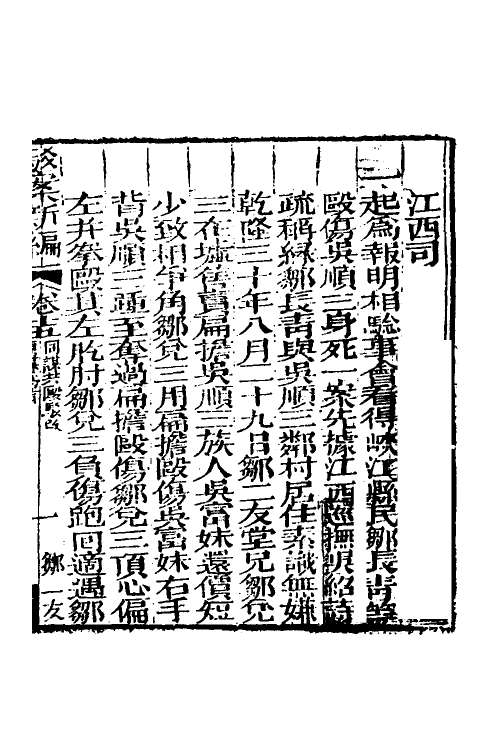 江西司
一起為報明相驗事會看得峽江縣民鄒長青等
毆傷吳順三身死一案先據江西巡撫明紹詩
疏稱緣鄒長青與吳順三鄰村居住素識無嫌
乾隆三十年八月二十九日鄒一友堂兄鄒兌
三在墟售賣扁擔吳順三族人吳富妹還價短
少致相爭角鄒兌三用扁擔毆傷吳富妹右手
背吳順三踵至奪過扁擔毆傷鄒兌三頂心偏
左并拳毆其左胳肘鄒兌三負傷跑回適遇鄒
駁案新編 卷十五 一 鄒一友